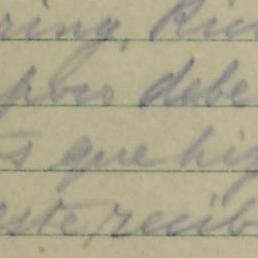 ring, Ric
pbro debe
s que hij
este, recib